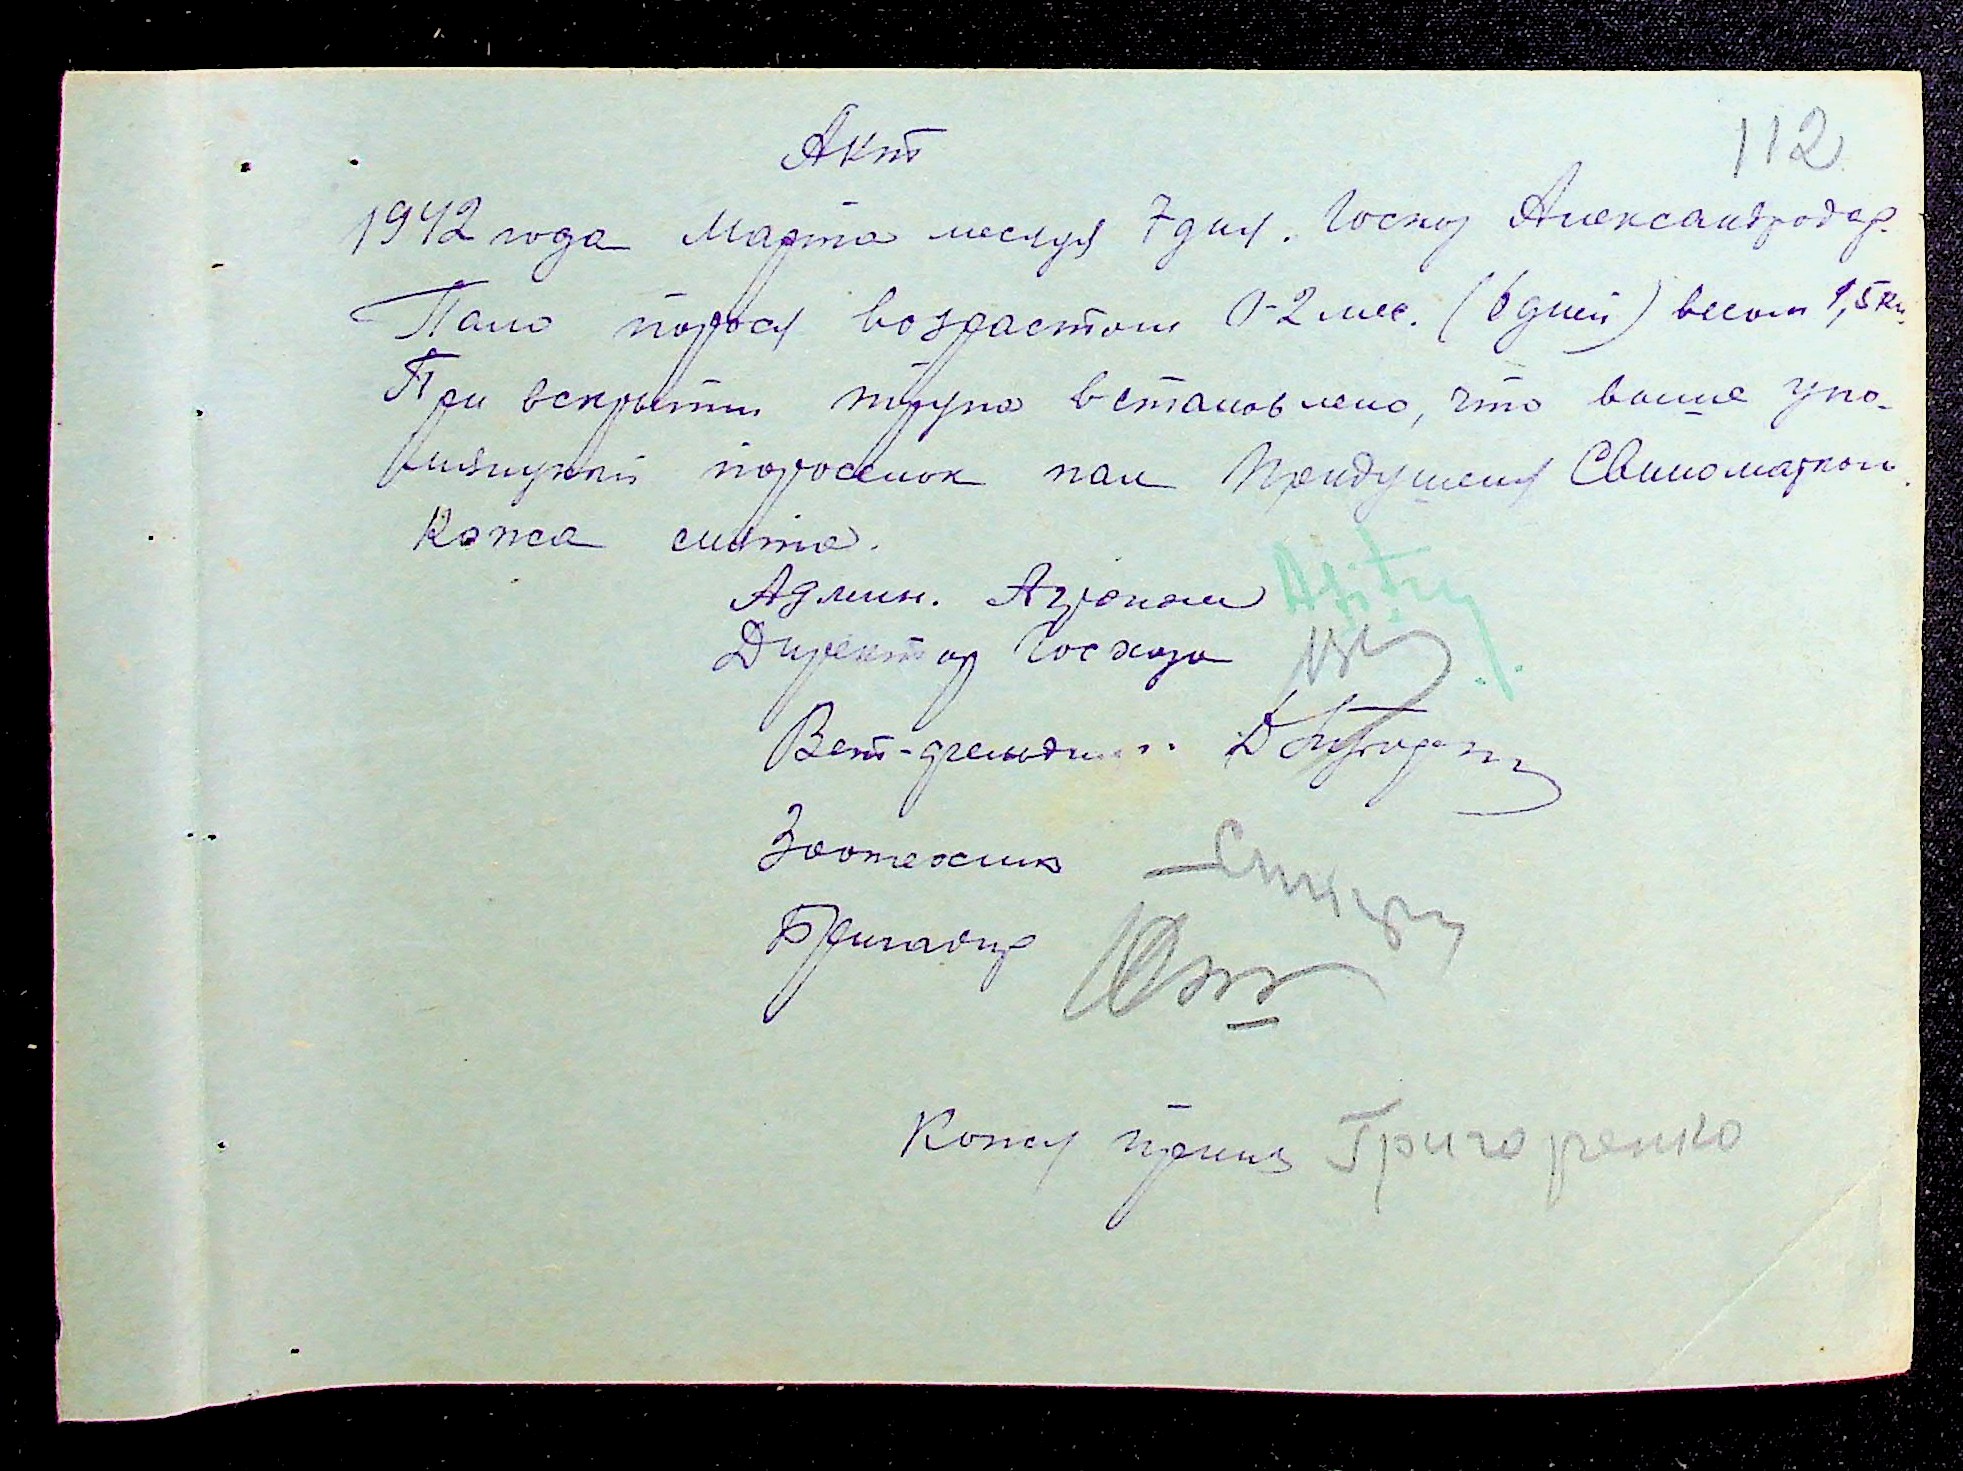 112
Акт
1942 года Марта месяця 7 дня. Госхоз Александродар.
Пало порося возрастом 0-2 мес. (6 дней) весом 1,5 кг.
При вскрытии трупа встановлено, что выше упо-
мянутый поросенок пал придушеня Свиноматкой.
Кожа снята.
Админ. Агроном
Директор Госхоза
Вет-фельдшер.
Зоотехник
Бригадир
Кожу принял Григоренко